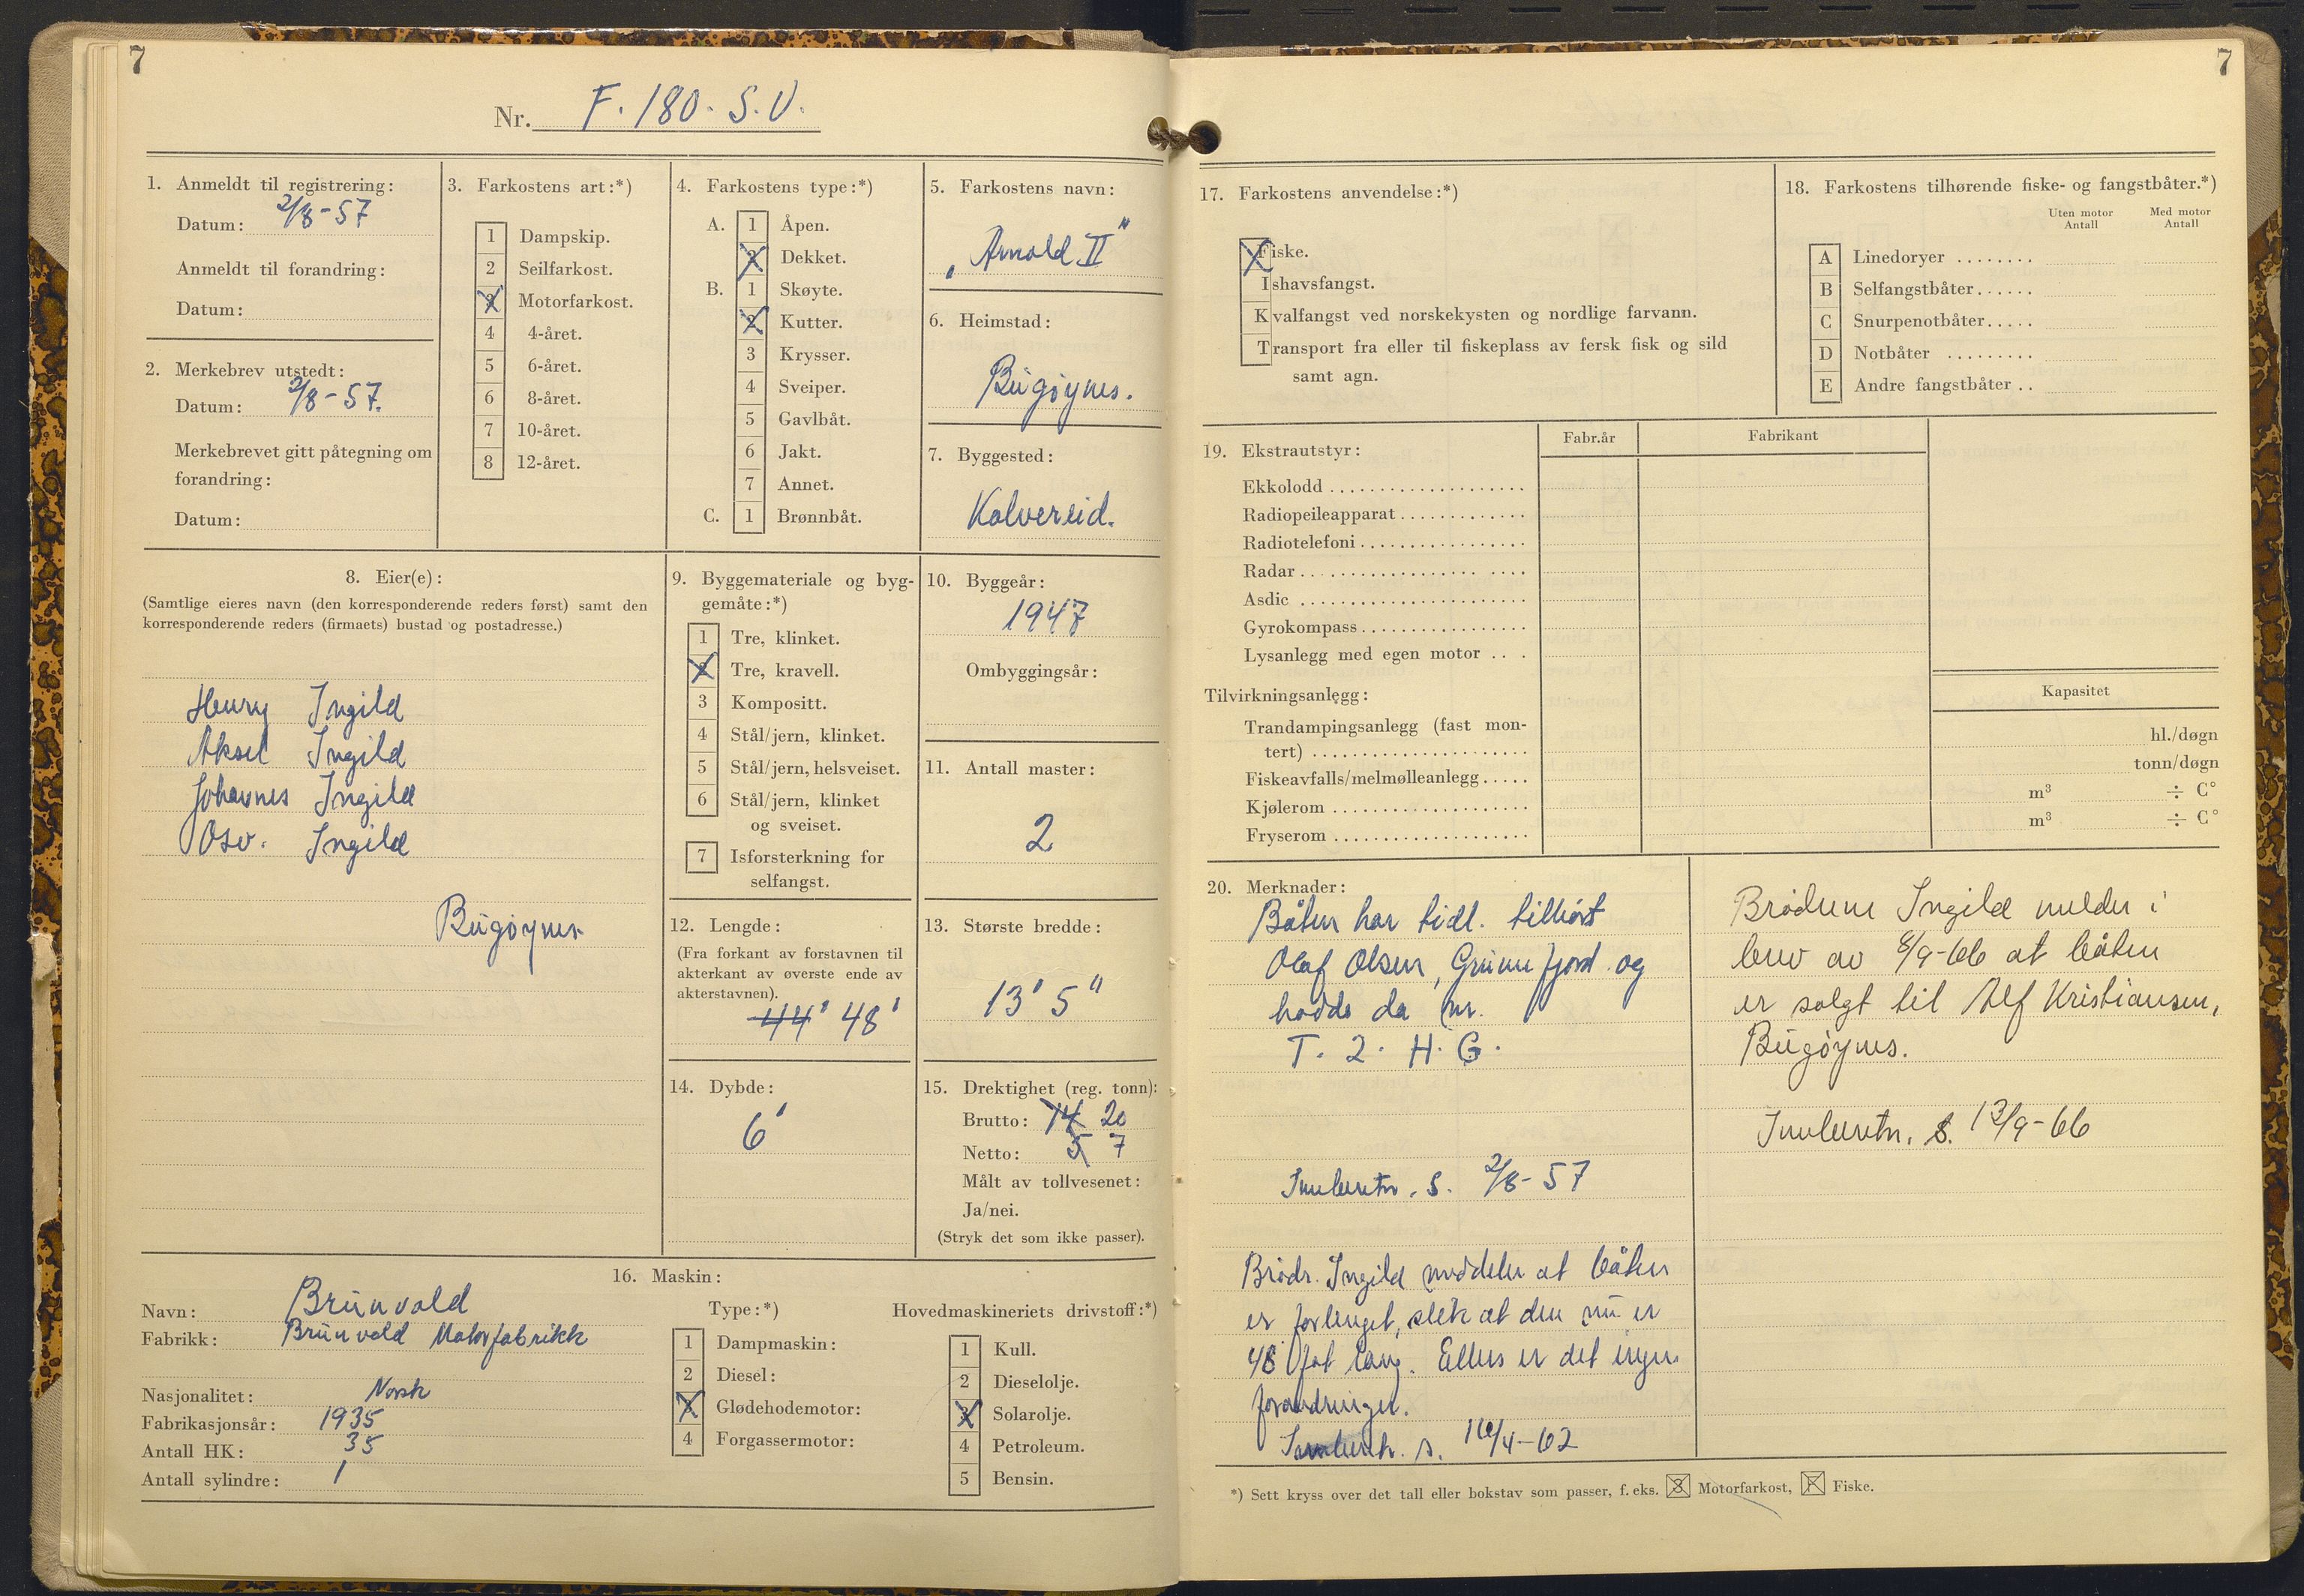 7
Nr. F. 180. S.V.
1. Anmeldt til registrering:
Datum: 2/8-57
Anmeldt til forandring:
Datum:
2. Merkebrev utstedt:
Datum: 2/8-57.
Merkebrevet gitt påtegning om
forandring:
Datum:
3. Farkostens art:*)
1 Dampskip.
2 Seilfarkost.
3 Motorfarkost.
4 4-året.
5 6-året.
6 8-året.
7 10-året.
8 12-året.
4. Farkostens type:*)
A. 1 Åpen.
2 Dekket.
B. 1 Skøyte.
2 Kutter.
3 Krysser.
4 Sveiper.
5 Gavlbåt.
6 Jakt.
7 Annet.
C. 1 Brønnbåt.
5. Farkostens navn:
"Arnold II"
6. Heimstad:
Bugøynes.
7. Byggested:
Kolvereid.
8. Eier(e):
(Samtlige eieres navn (den korresponderende reders først) samt den
korresponderende reders (firmaets) bustad og postadresse.)
Henry Ingild
Aksel Ingild
Johannes Ingild
Osv. Ingild
Bugøynes
9. Byggemateriale og byg-
gemåte:*)
1 Tre, klinket.
2 Tre, kravell.
3 Kompositt.
4 Stål/jern, klinket.
5 Stål/jern, helsveiset.
6 Stål/jern, klinket
og sveiset.
7 Isforsterkning for
selfangst.
10. Byggeår:
1947
Ombyggingsår:
11. Antall master:
2
12. Lengde:
(Fra forkant av forstavnen til
akterkant av øverste ende av
akterstavnen).
44' 48'
13. Største bredde:
13' 5"
14. Dybde:
6'
15. Drektighet (reg. tonn):
Brutto: 14 20
Netto: 5 7
Målt av tollvesenet:
Ja/nei.
(Stryk det som ikke passer).
16. Maskin:
Navn: Brunvold
Fabrikk: Brunvold Motorfabrikk
Nasjonalitet: Norsk
Fabrikasjonsår: 1935
Antall HK: 35
Antall sylindre: 1
Type:*)
1 Dampmaskin:
2 Diesel:
3 Glødehodemotor:
4 Forgassermotor:
Hovedmaskineriets drivstoff:*)
1 Kull.
2 Dieselolje.
3 Solarolje.
4 Petroleum.
5 Bensin.
7
17. Farkostens anvendelse:*)
Fiske.
Ishavsfangst.
Kvalfangst ved norskekysten og nordlige farvann.
Transport fra eller til fiskeplass av fersk fisk og sild
samt agn.
18. Farkostens tilhørende fiske- og fangstbåter.*)
Uten motor Antall
Med motor Antall
A Linedoryer ........
B Selfangstbåter......
C Snurpenotbåter.....
D Notbåter .........
E Andre fangstbåter ..
19. Ekstrautstyr:
Fabr.år
Fabrikant
Ekkolodd ....................
Radiopeileapparat .............
Radiotelefoni .................
Radar ......................
Asdic .......................
Gyrokompass .................
Lysanlegg med egen motor ....
Tilvirkningsanlegg:
Kapasitet
Trandampingsanlegg (fast mon-
tert) ...................... hl./døgn
Fiskeavfalls/melmølleanlegg ..... tonn/døgn
Kjølerom .................... m³ ÷ C°
Fryserom .................... m³ ÷ C°
20. Merknader:
Båten har tidl. tilhørt
Olaf Olsen, Grunnfjord og
hadde da nr.
T. 2. H. G.
2/8-57
Brødr. Ingild meddeler at båten
er forlenget, slik at den nu er
48 fot lang. Ellers er det ingen
forandringer.
16/4-62
Brødrene Ingild melder i
brev av 8/9-66 at båten
er solgt til Alf Kristiansen,
Bugøynes.
13/9-66
*) Sett kryss over det tall eller bokstav som passer, f. eks. 3 Motorfarkost, F Fiske.